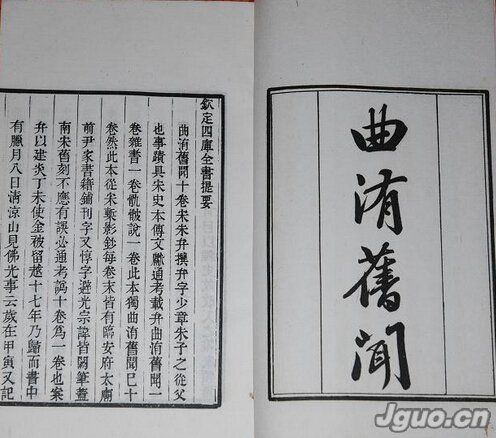 曲洧舊聞
欽定四庫全書提要
曲洧舊聞十卷宋朱弁撰弁字少章朱子之從父
也事蹟具宋史本傳文獻通考載弁曲洧舊聞一
卷雜書一卷骫骳說一卷此本獨曲洧舊聞已十
卷然此本從宋槧影鈔每卷末皆有臨安府太廟
前尹家書籍鋪刊字又惇字避光宗諱皆闕筆蓋
南宋舊刻不應有誤必通考譌十卷為一卷也案
弁以建炎丁未使金被留越十七年乃歸而書中
有臘月八日清涼山見佛光事云歲在甲寅又記
Jguo.cn